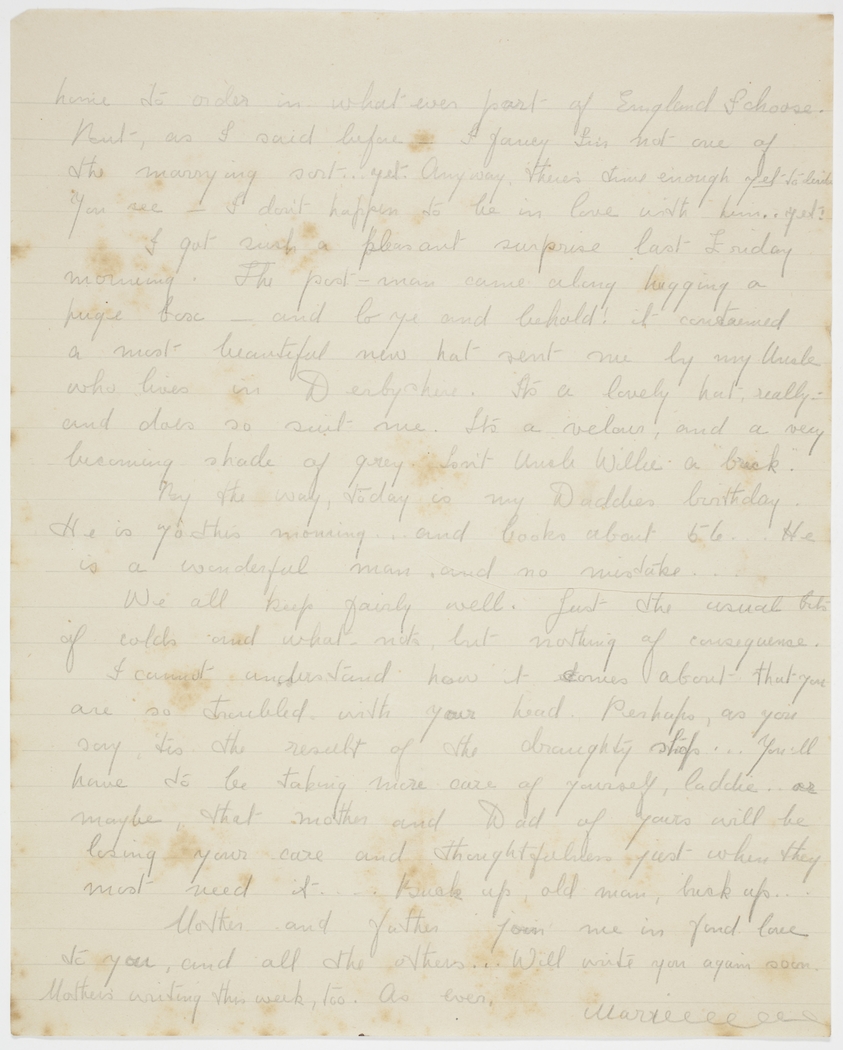 home to order in what ever part of England I choose.
But, as I said before — I fancy I'm not one of
the marrying sort... yet. Anyway, there's time enough yet to
You see — I don't happen to be in love with him.. yet?
I got such a pleasant surprise last Friday
morning. The post-man came along hugging a
huge box — and lo ye and behold! it contained
a most beautiful new hat sent me by my Uncle
who lives in Derbyshire. Its a lovely hat, really -
and does so suit me. Its a velour, and a very
becoming shade of grey. Isn't Uncle Willie a "brick".
By the way, today is my Daddies birthday.
He is 70 this morning... and looks about 56... He
is a wonderful man, and no mistake...
We all keep fairly well. Just the usual bits
of colds and what-nots, but nothing of consequence.
I cannot understand how it comes about that you
are so troubled with your head. Perhaps, as you
say, tis the result of the draughty ... You'll
have to be taking more care of yourself, laddie.. or
maybe, that mother and Dad of yours will be
losing your care and thoughtfulness just when they
most need it.... Buck up, old man, buck up...
Mother and father join me in fond love
to you, and all the others... Will write you again soon.
Mother's writing this week, too. As ever,
Marie